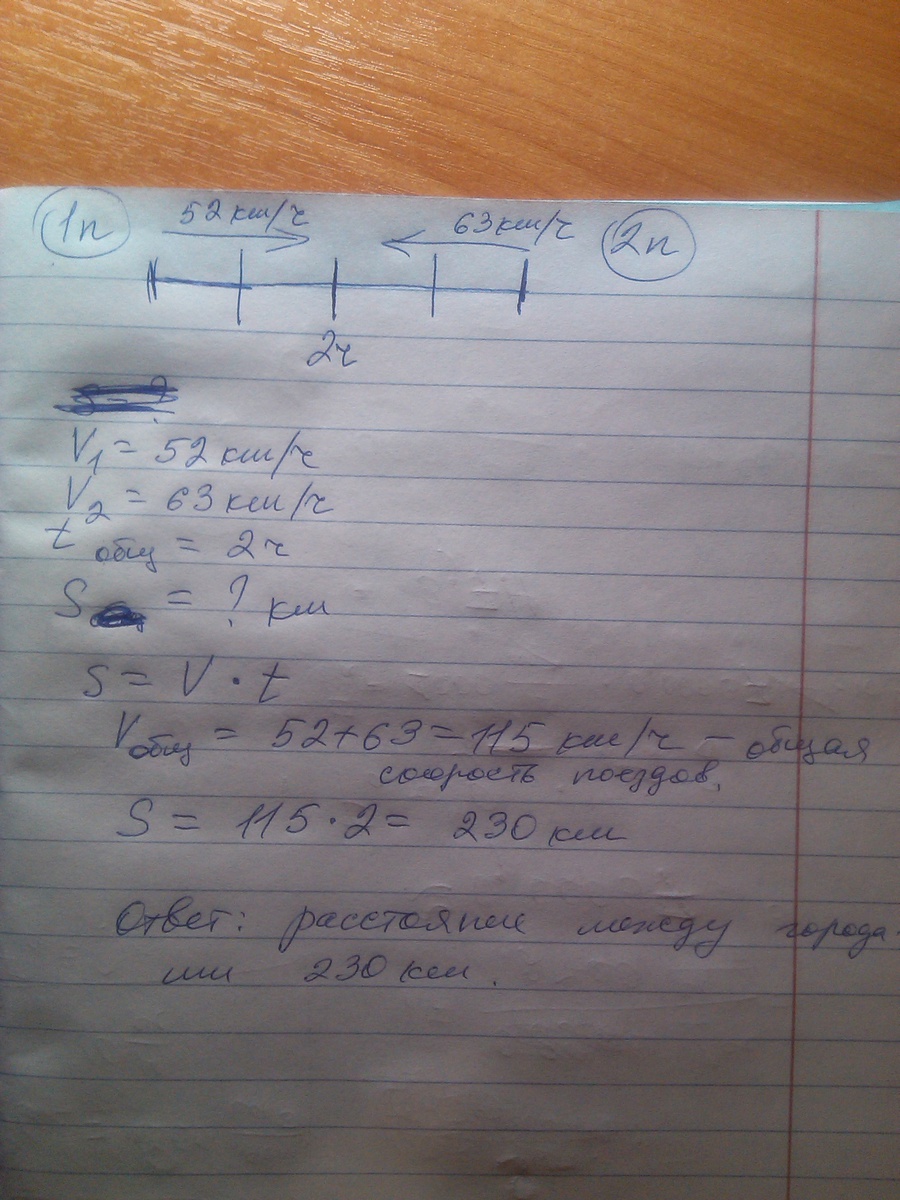 1п 52 км/ч 63 км/ч 2п
2ч
V1 = 52 км/ч
V2 = 63 км/ч
t общ = 2ч
S = ? км
S = V · t
Vобщ = 52+63=115 км/ч – общая
скорость поездов.
S = 115·2= 230 км
Ответ: расстояние между города-
ми 230 км.